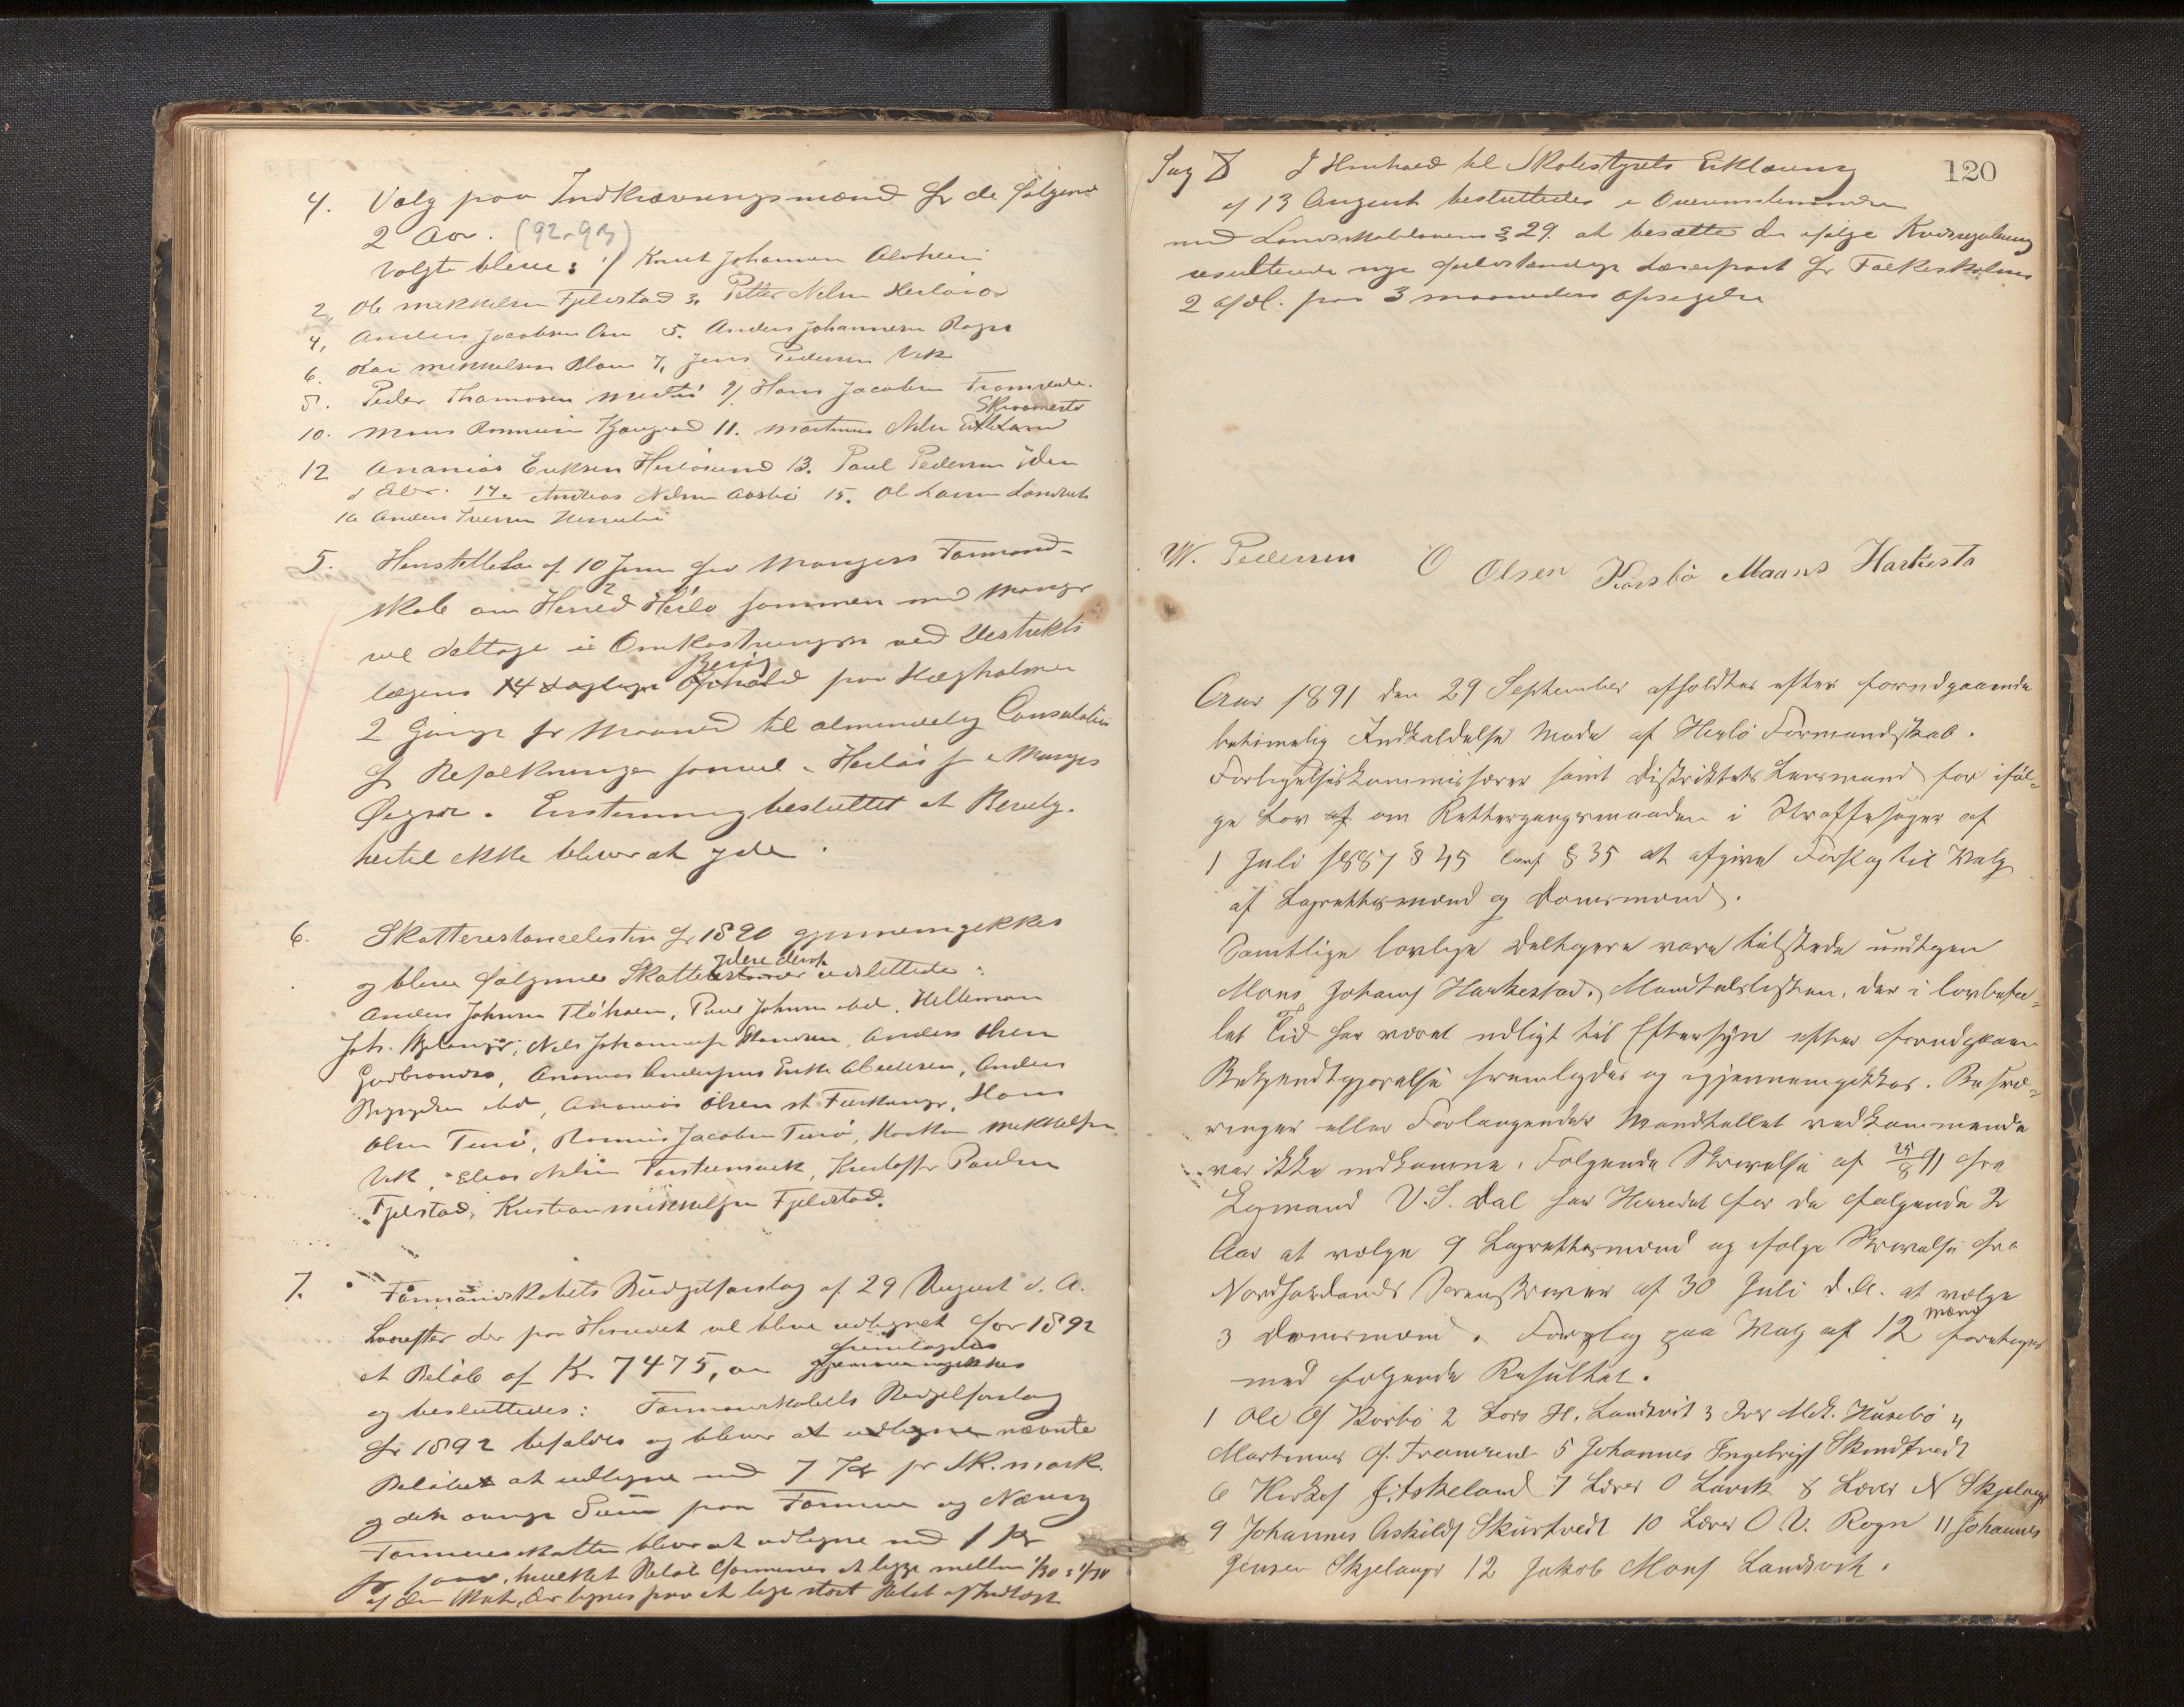 4. Valg paa Indkrævningsmænd for de følgende
2 Aar. (92-93)
Valgte bleve: 1/ Knut Johannesen Alvheim
2, Ole Mikkelsen Fjeldstad 3, Petter Nilsen Herløvær
4, Anders Jacobsen 5. Anders Johannesen Rogn
6. Mikkelsen Blom 7, Jens Pedersen Vik
8. Peder Thomasen 9/ Hans Jacobsen Tromsede.
Skraamestø
10. Mons Kjærgaard 11. Martinus Nilsen
12 Ananias Eriksen Herløsund 13. Paul Pedersen
14. Andreas Nilsen Aasbø 15. Ole Larsen Landsvik
16 Anders Iversen
5. Henstillelse af 10 Juni fra Mangers Formand-
skab om Herred Herlø sammen med Manger
vil deltage i Omkostningen ved Distrikts
Besøg
lægens 14 daglige Ophold paa Hægholmen
2 Gange pr Maaned til almindelig Consulation
for Befolkningen saavel i Herlø som i Mangers
Øigar. Enstemmig besluttet at Bevilg.
hertil ikke bliver at yde.
6. Skatterestancelisten for 1890 gjennemgikkes
og bleve følgende Skatteydere udslettede:
Anders Johnsen Fløksen, Paul Johnsen ibd, Hilleman
Joh. Bjelanger, Nils Johannessen Anders Olsen
Gudbrandsø, Ananias Andersens Enke Abedersen, Anders
ibd, Ananias Olsen st Turkanger, Hans
Olsen Turø, Rasmus Jacobsen Turø, Haakon Mikkelsen
Vik, Elias Nilsen Kristoffer Paulsen
Fjelstad, Kristian Mikkelsen Fjeldstad.
7. Formandskabets Budgetforslag af 29 August d. A.
hvorefter der paa Herredet vil blive udlignet for 1892
fremlagdes
et Beløb af Kr 7475, gjennemgikkes
og besluttedes: Formandskabets Budgetforslag
for 1892 befaldes og bliver at udligne nævnte
Beløbet at udligne med 7 Kr pr Sk. mark.
og den øvrige Sum paa Formue og Næring
Formuesskatten bliver at udligne med 1 Kr
hvilket Beløb formenes at ligge mellem 1/30 : 1/70
af den Skat, der lignes paa et lige stort Beløb af Indtægt
120
Sag 8 I Henhold til Skolestyrets Erklæring
af 13 August besluttedes i Overensstemmelse
med Landsskolelovens § 29. at besætte den ifølge Kredsregulering
resulterende nye selvstændige Lærerpost for Folkeskolens
2 afdl. paa 3 maaneders opsigelse
W. Pedersen O Olsen Kårsbø Maans Harkestø
Aar 1891 den 29 September afholdtes efter forudgaaende
betimelig Indkaldelse Møde af Herlø Formandskab.
Forligelseskommissærer samt Distriktets Lensmand for iføl-
ge Lov af om Rettergangsmaaden i Straffesager af
1 Juli 1887 § 45 conf § 35 at afgive Forslag til Valg
af Lagrettesmænd og Domsmænd.
Samtlige lovlige Deltagere vare tilstede undtagen
Mons Johans Harkestad. Mandtalslisten, der i lovbefa-
let Tid har været udlagt til Eftersyn efter forudgaaen
Bekjendtgjørelse fremlagdes og gjennemgikkes. Besvæ-
ringer eller Forlangender Mandtallet vedkommende
var ikke indkomne. Følgende Skrivelse af 25/8 91 fra
Lagmand V. S. Dal har Herredet for de følgende 2
Aar at vælge 9 Lagrettesmænd og ifølge Skrivelse fra
Nordhordlands Sorenskriver af 30 Juli d. A. at vælge
3 Domsmænd. Forslag paa Valg af 12 Mænd foretoges
med følgende Resultat.
1 Ole O/ Korsbø 2 Lars H. Landsvik 3 Iver Mik. Husebø 4
Martinus O/. Tromsend 5 Johannes Ingebrigts Skurtvedt
6 Herlof Eitskeland 7 Lærer O Larsk 8 Lærer N Skjelanger
9 Johannes Askilds Skurtvedt 10 Lærer O. V. Rogn 11 Johannes
Jensen Skjelanger 12 Jakob Mons Landsvik.